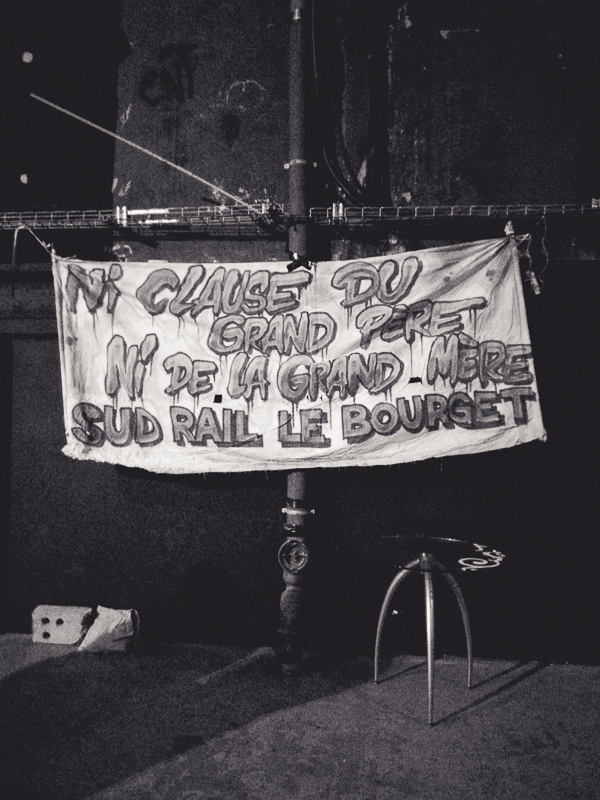 CNT
Ni CLAUSE DU
GRAND PERE
Ni DE LA GRAND MÈRE
SUD RAIL LE BOURGET